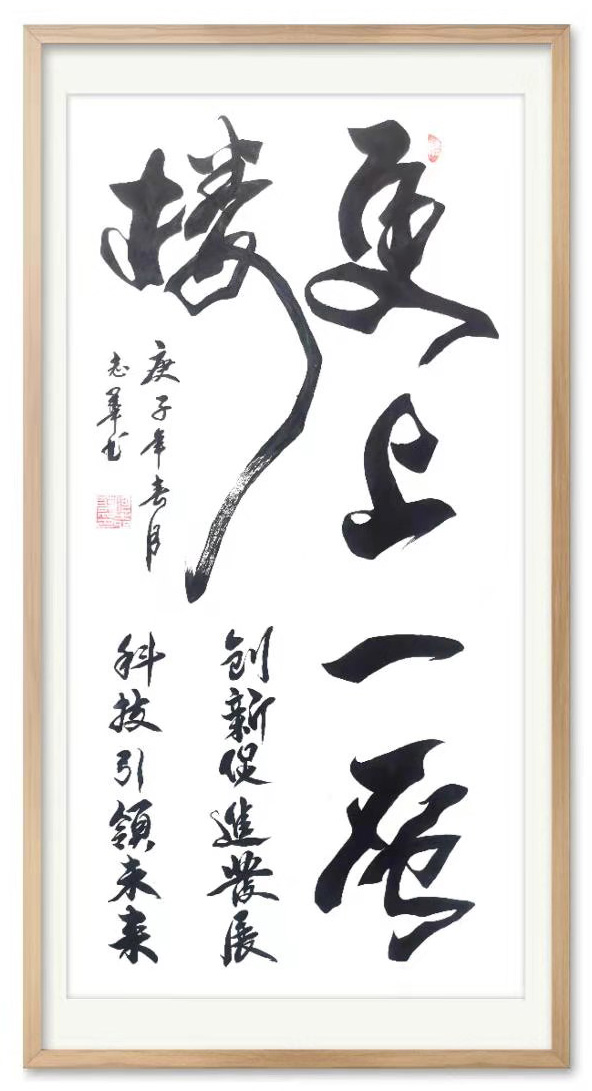 更上一层
楼
创新促進發展
科技引領未来
庚子年春月
志華书